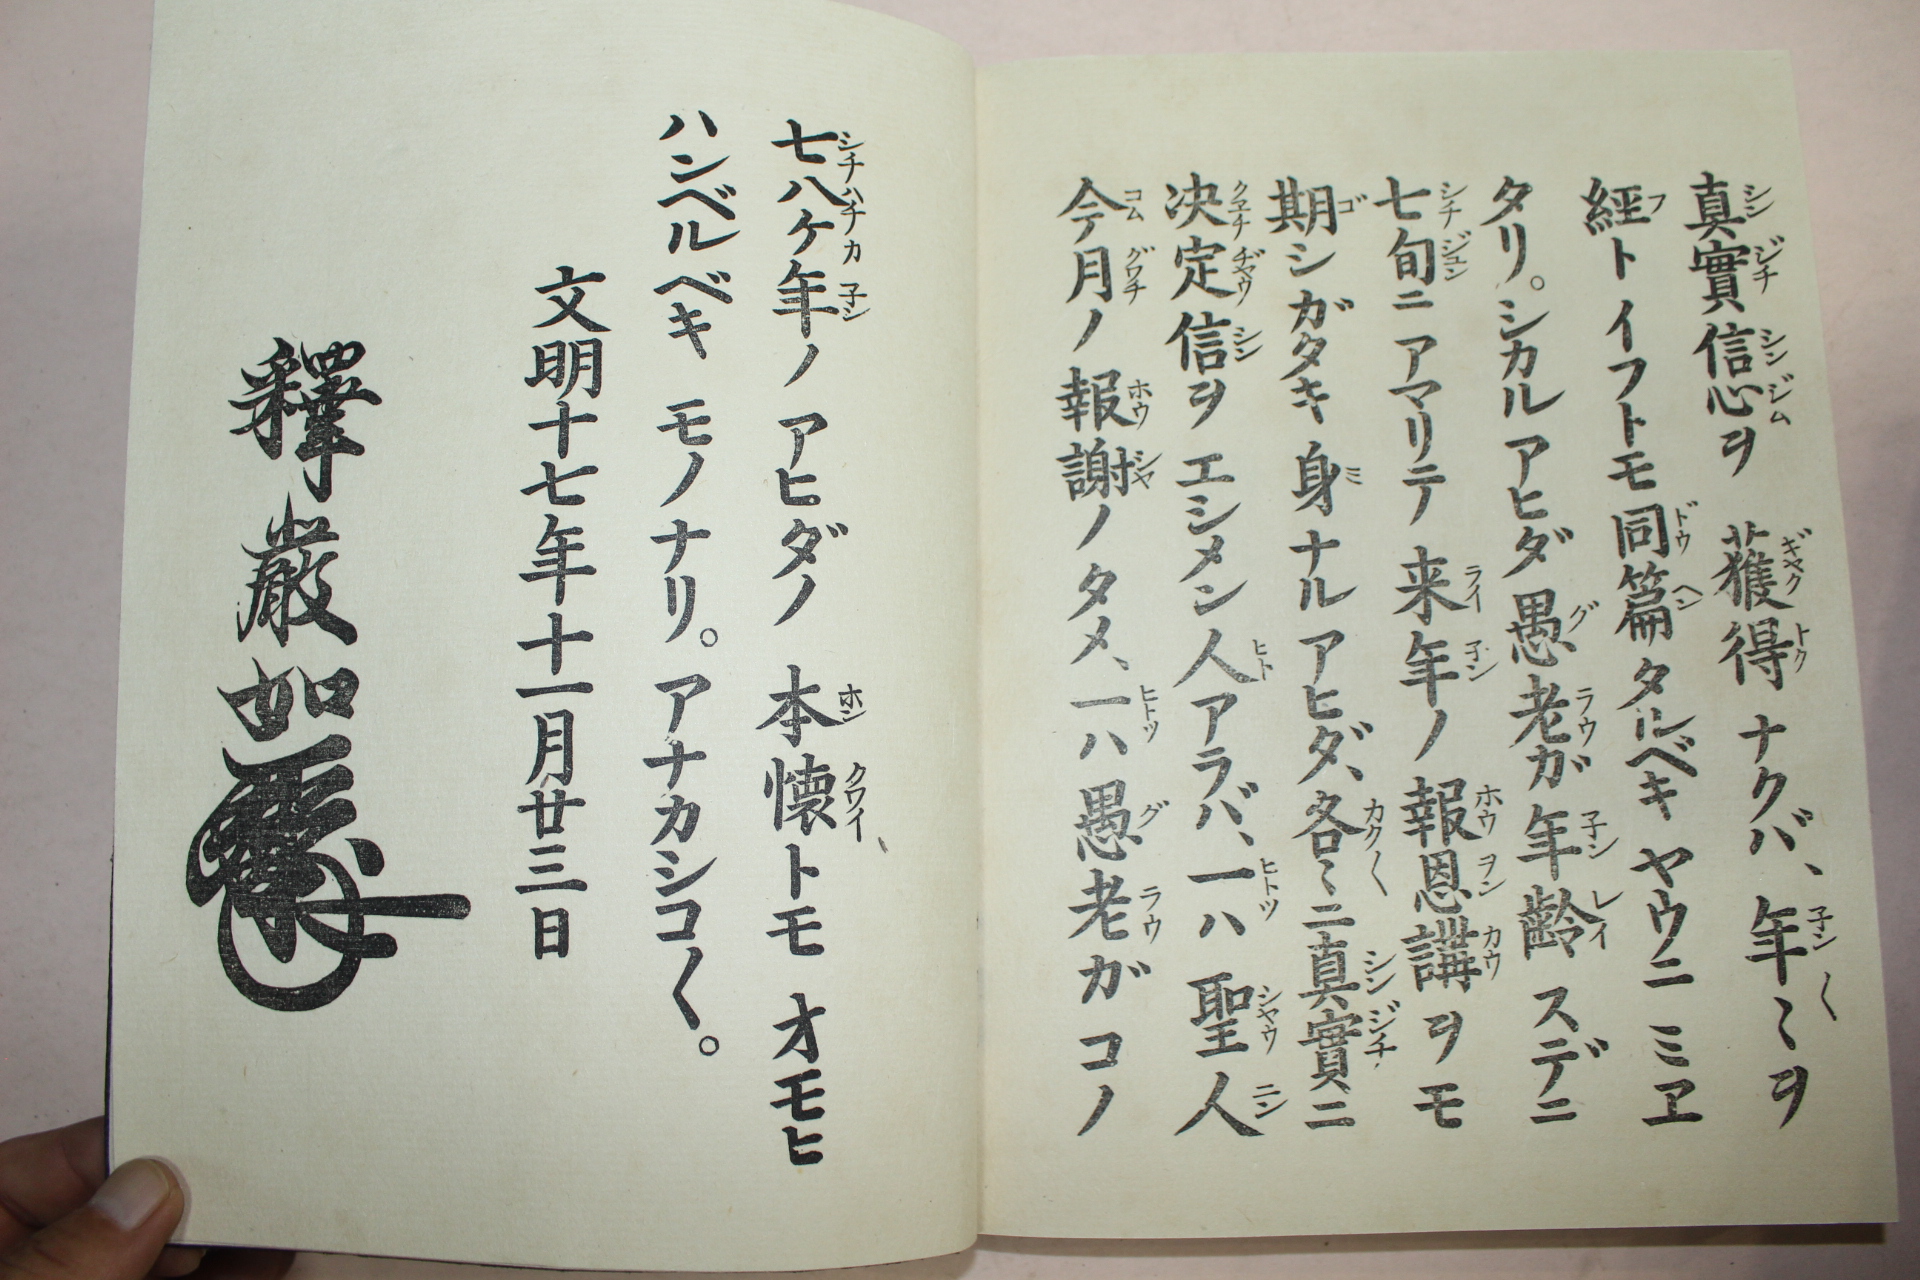 真實信心ヲ獲得ナクバ、年〻ヲ
経トイフトモ同篇タルベキヤウニミヱ
タリ。シカルアヒダ愚老ガ年齢スデニ
七旬ニアマリテ来年ノ報恩講ヲモ
期シガタキ身ナルアヒダ、各〻ニ真實ニ
决定信ヲエシメン人アラバ、一ハ聖人
今月ノ報謝ノタメ、一ハ愚老ガコノ
七八ケ年ノアヒダノ本懐トモオモヒ
ハンベルベキモノナリ。アナカシコ〱。
文明十七年十一月廿三日
釋厳如